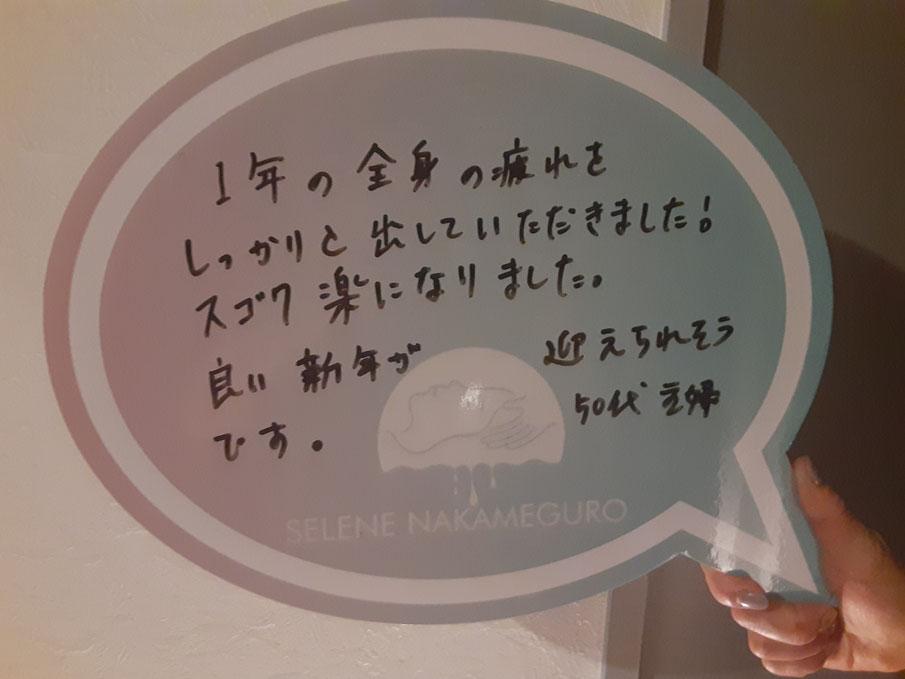 1年の全身の疲れを
しっかりと出していただきました!
スゴク楽になりました。
良い新年が 迎えられそう
です。
50代 主婦
SELENE NAKAMEGURO